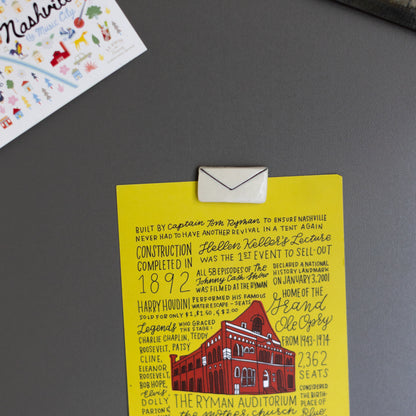 Nashville
Music City
BUILT BY Captain Tom Ryman TO ENSURE NASHVILLE
NEVER HAD TO HAVE ANOTHER REVIVAL IN A TENT AGAIN
CONSTRUCTION
COMPLETED IN
1892
Hellen Keller's Lecture
WAS THE 1ST EVENT TO SELL-OUT
ALL 58 EPISODES OF The
Johnny Cash Show
WAS FILMED AT THE RYMAN
DECLARED A NATIONAL
HISTORY LANDMARK
ON JANUARY 3, 2001
HARRY HOUDINI PERFORMED HIS FAMOUS
WATER ESCAPE - SEATS
SOLD FOR ONLY $1, $1.50, & $2.00
HOME OF THE
Grand
Ole Opry
FROM 1943-1974
Legends WHO GRACED
THE STAGE -
CHARLIE CHAPLIN, TEDDY
ROOSEVELT, PATSY
CLINE,
ELEANOR
ROOSEVELT,
BOB HOPE,
Elvis
DOLLY
PARTON
2,362
SEATS
CONSIDERED
THE BIRTH-
PLACE OF
Blue
THE RYMAN AUDITORIUM
the mother church